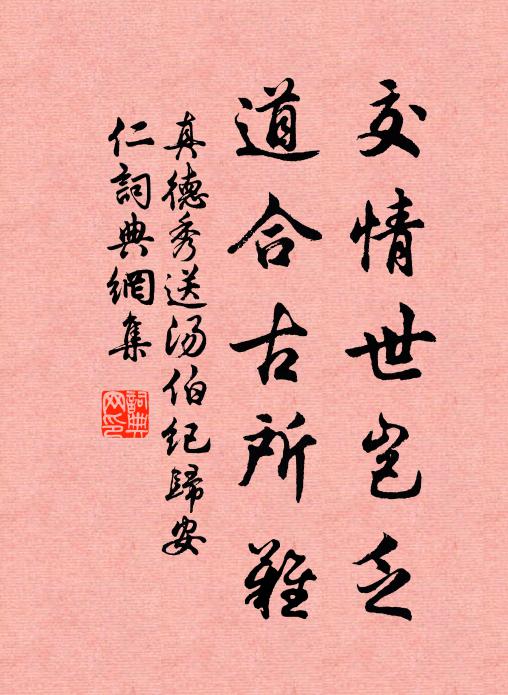 交情世岂乏
道合古所難
真德秀送汤伯纪歸安
仁詞典網集
詞典网印